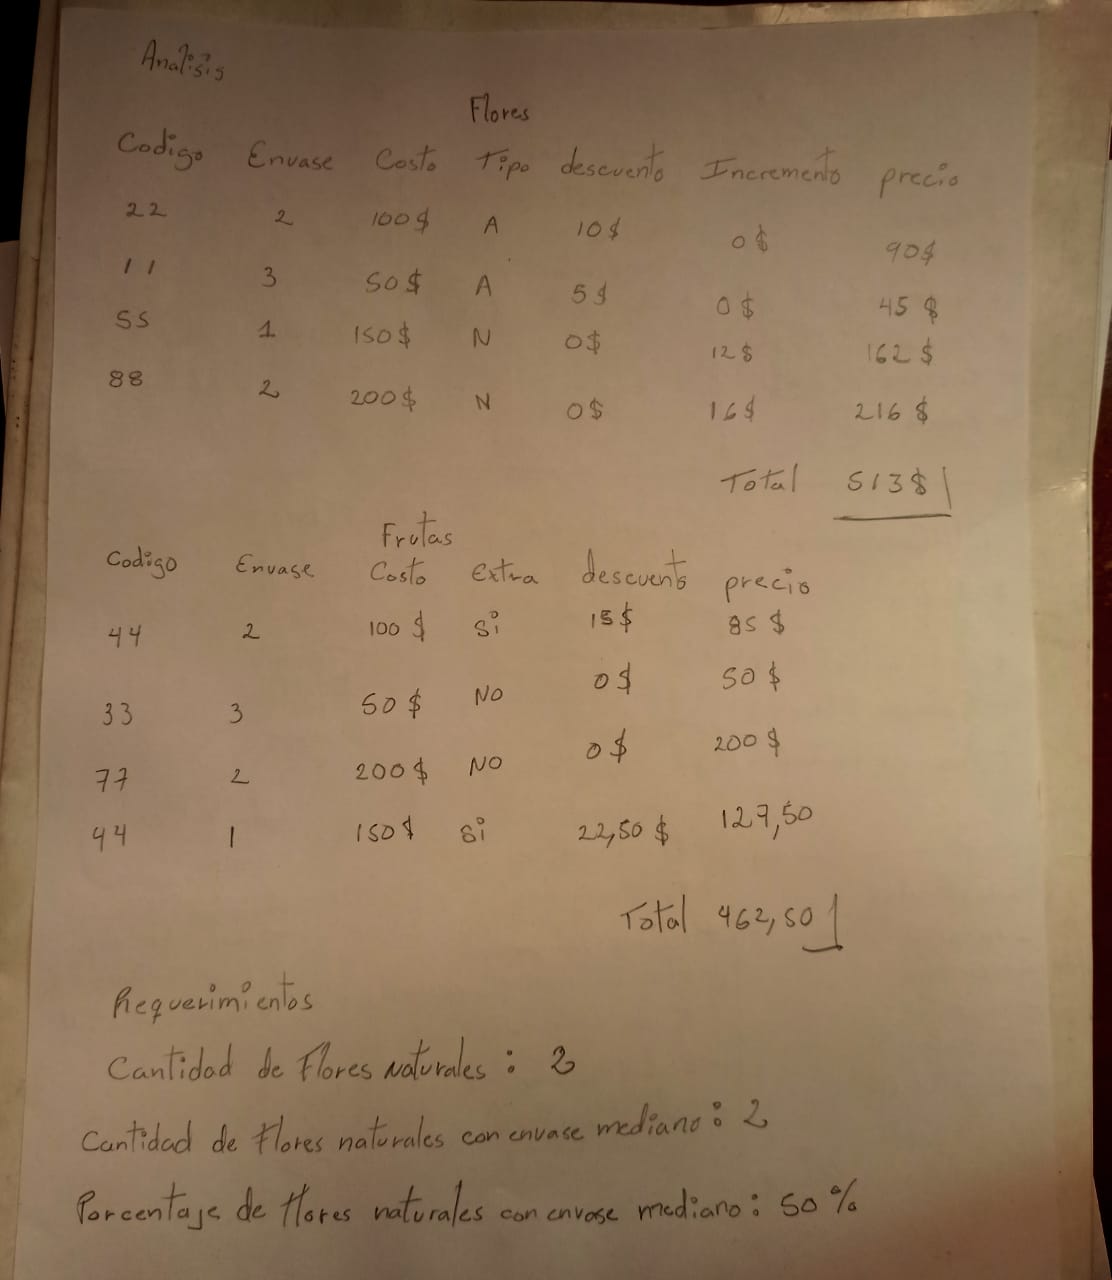 Analisis
Flores
Codigo Envase Costo Tipo descuento Incremento precio
22 2 100$ A 10$ 0$ 90$
11 3 50$ A 5$ 0$ 45$
55 1 150$ N 0$ 12$ 162$
88 2 200$ N 0$ 16$ 216$
Total 513$
Frutas
Codigo Envase Costo extra descuento precio
44 2 100$ Si 15$ 85$
33 3 50$ NO 0$ 50$
77 2 200$ NO 0$ 200$
44 1 150$ Si 22,50$ 127,50
Total 462,50
Requerimientos
Cantidad de Flores Naturales: 2
Cantidad de flores naturales con envase mediano: 2
Porcentaje de flores naturales con envase mediano: 50%